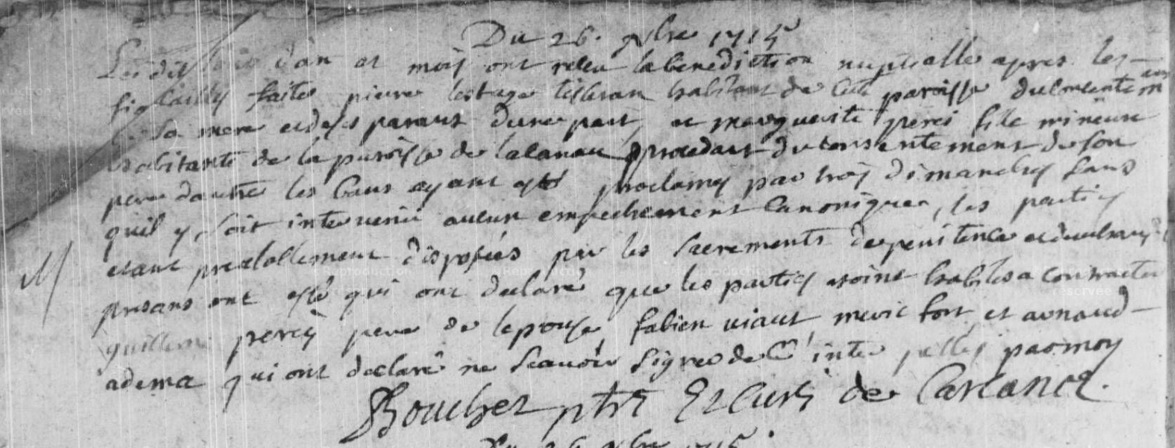 Du 26. 9bre 1715
Lesdit jour d'an et mois ont receu la benediction nuptialle apres les
fiancailles faites pierre lestage tisseran habitant de cete paroisse du consentem
de sa mere et de ses parans dune part, et marguerite perei file mineure
habitante de la paroisse de lacanau procedant du consentement de son
pere dautre les bans ayant esté proclamés par trois dimanches sans
quil y soit intervenu aucun empechement canonique, les parties
etant prealablement disposées par les sacrements de penitence et
presans ont esté qui ont declaré que les parties etoint habiles a contracter
guillem perei pere de lepouse, fabien viaut, meric fort et arnaud
adema qui ont declaré ne scavoir signer de ce inter pellés par moy
Boucher ptre Et curé de Carcans.
Du 26 9bre 1715